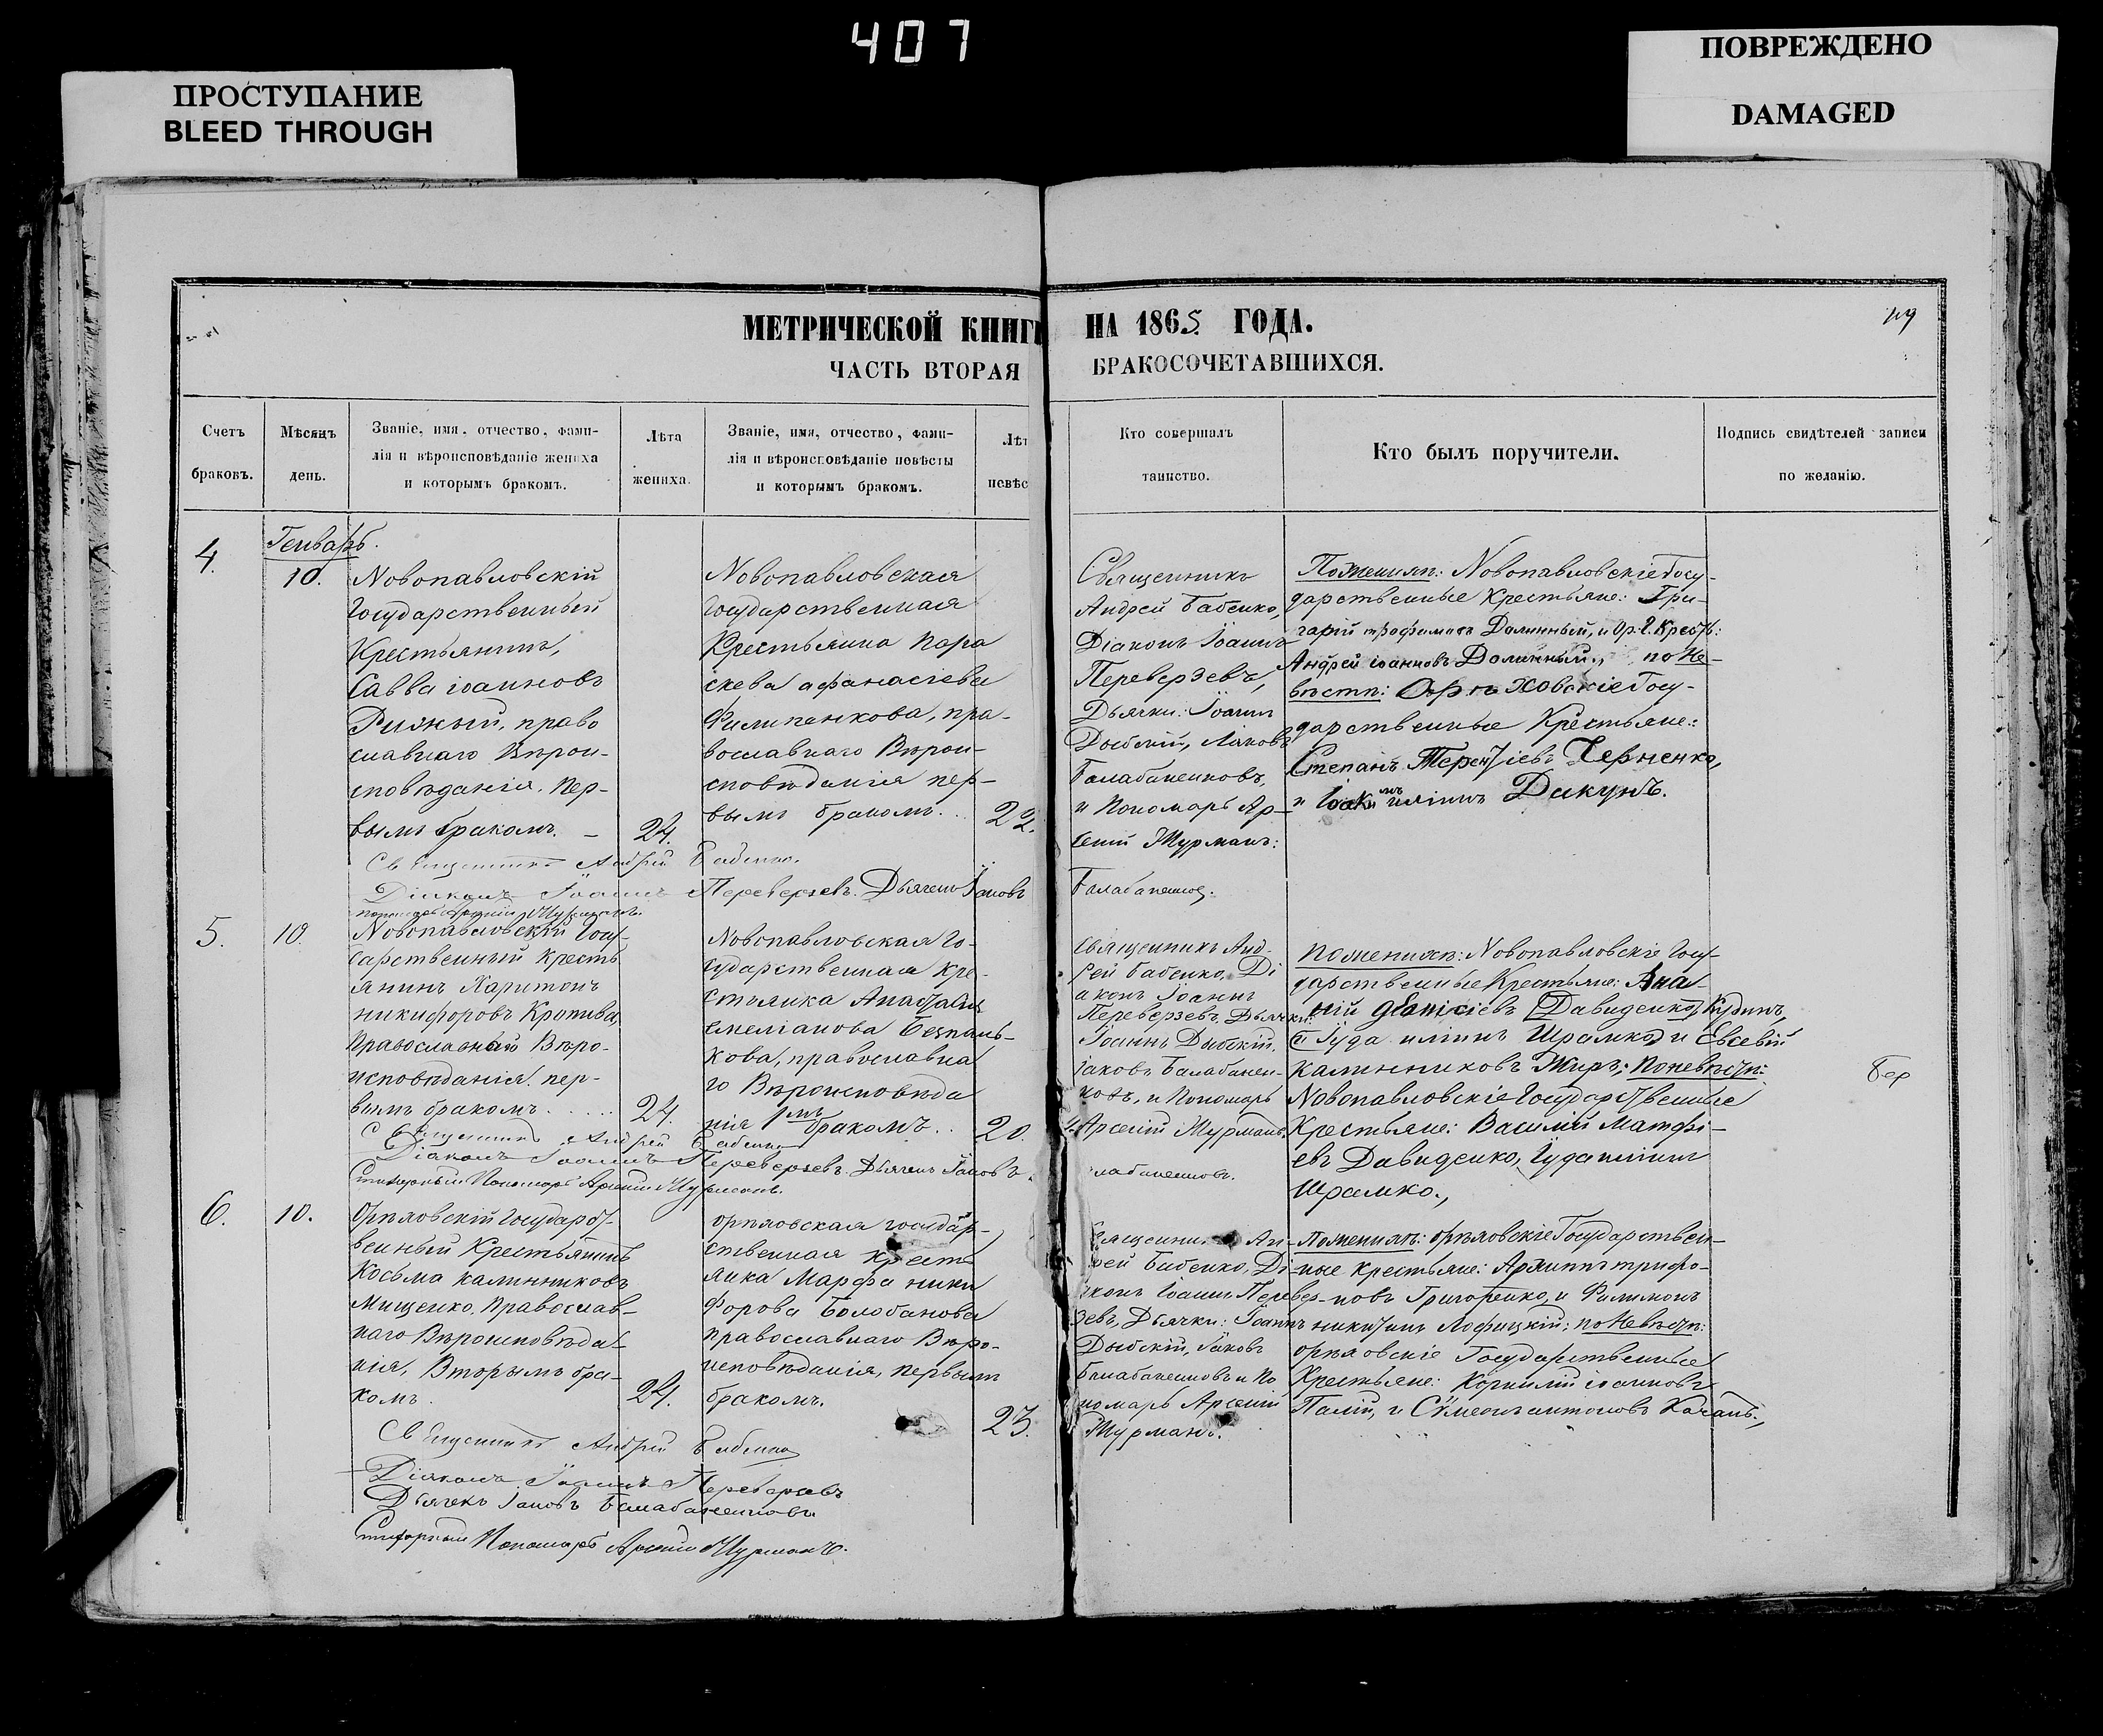 407
ПРОСТУПАНИЕ
BLEED THROUGH
ПОВРЕЖДЕНО
DAMAGED
МЕТРИЧЕСКОЙ КНИГИ НА 1865 ГОДА.
119
ЧАСТЬ ВТОРАЯ БРАКОСОЧЕТАВШИХСЯ.
Счетъ
браковъ.
Мѣсяцъ
день.
Званіе, имя, отчество, фами-
лія и вѣроисповѣданіе жениха
и которымъ бракомъ.
Лѣта
жениха.
Званіе, имя, отчество, фами-
лія и вѣроисповѣданіе невѣсты
и которымъ бракомъ.
Лѣт
невѣс
Кто совершалъ
таинство.
Кто былъ поручители.
Подпись свидѣтелей записи
по желанію.
4.
Генварь.
10.
Новопавловскій
Государственный
Крестьянинъ,
Савва іоанновъ
право
славнаго Вѣрои-
сповѣданія. Пер-
вымъ бракомъ. –
24.
Новопавловская
государственная
Крестьянка Пара
скева афанасіева
Филипенкова, пра-
вославнаго Вѣрои-
сповѣданія пер-
вымъ бракомъ...
22.
Священникъ
Андрей Бабенко,
Діаконъ Іоаннъ
Переверзевъ,
Дьячки: Іоаннъ
Дыбскій, Іаковъ
Балабаненковъ,
и Пономарь Ар-
сеній Журманъ:
По женихѣ: Новопавловскіе Госу-
дарственные Крестьяне: Гри-
горій трофимовъ Долинный, и Ор. Г. Крест:
Андрей іоанновъ Долинный., по Не-
вѣстѣ: Орѣховскіе Госу-
дарственные Крестьяне:
Степанъ Терентіевъ Черненко,
и Іоакимъ иліинъ Дикунъ.
Священникъ Андрей Бабенко.
Діаконъ Іоаннъ Переверзевъ. Дьячекъ Іаковъ Балабаненков.
пономарь Арсеній Журманъ.
5.
10.
Новопавловскій Госу-
дарственный Кресть
янинъ Харитонъ
никифоровъ Кропива,
Православнаго Вѣро-
исповѣданія. пер-
вымъ бракомъ.....
24.
Новопавловская Го-
сударственная Кре-
стьянка Анастасія
емеліанова Безпаль-
кова, православна
го Вѣроисповѣда
нія 1мъ бракомъ..
20.
Священникъ Анд-
рей Бабенко, Ді
аконъ Іоаннъ
Переверзевъ, Дьячки:
Іоаннъ Дыбскій,
Іаковъ Балабанен-
ковъ, и Пономарь
Арсеній Журманъ.
По женихѣ: Новопавловскіе Госу-
дарственные Крестьяне: Ана-
ній Давиденко,
Іуда иліинъ Шрамко, и Евсевій
калинниковъ Жиръ; По невѣстѣ:
Новопавловскіе Государственные
Крестьяне: Василій Матфі-
евъ Давиденко, Іуда иліинъ
Шрамко.,
Священникъ Андрей Бабенко
Діаконъ Іоаннъ Переверзевъ. Дьячекъ Іаковъ Балабаненковъ.
Стихарный Пономарь Арсеній Журманъ.
6.
10.
Орѣховскій Государст-
венный Крестьянинъ
Косьма калинниковъ
Мищенко, Православ-
наго Вѣроисповѣда-
нія, Вторымъ бра-
комъ.
24.
орѣховская государ-
ственная крестья
янка Марфа ники
форова Болобанова
православнаго Вѣро-
исповѣданія, первымъ
бракомъ.
23.
Священникъ Ан-
дрей Бабенко, Ді-
аконъ Іоаннъ Перевер-
зевъ, Дьячки: Іоаннъ
Дыбскій, Іаковъ
Балабаненковъ и По
номарь Арсеній
Журманъ.
По женихѣ: орѣховскіе Государствен-
ные крестьяне: Архиппъ трифо-
новъ Григоренко, и Филимонъ
никитинъ Лофицкій; по Невѣстѣ:
орѣховскіе Государственные
Крестьяне: Корнилій іоанновъ
Палій, и Сѵмеонъ антоновъ Качанъ.,
Священникъ Андрей Бабенко
Діаконъ Іоаннъ Переверзевъ
Дьячекъ Іаковъ Балабаненковъ.
Стихарный Пономарь Арсеній Журманъ.